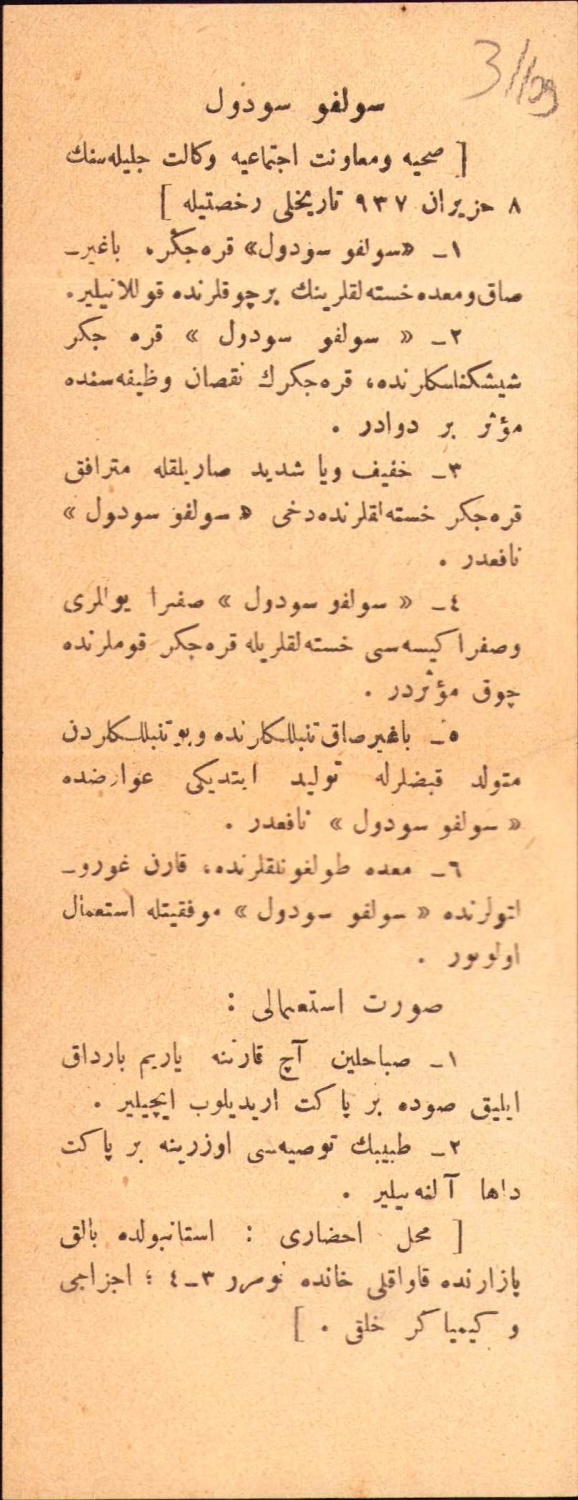 3/109
سولفو سودول
[ صحیه ومعاونت اجتماعیه وكالت جلیله‌سنك
٨ حزیران ٩٣٧ تاریخلی رخصتیله ]
١ـ «سولفو سودول» قره‌جكر، باغیرـ
صاق ومعده خسته‌لقلرینك برچوقلرنده قوللانیلیر.
٢ـ « سولفو سودول » قره جكر
شیشكنلكلرنده، قره‌جكرك نقصان وظیفه‌سنده
مؤثر بر دوادر .
٣ـ خفیف ویا شدید صاریلقله مترافق
قره‌جكر خسته‌لقلرنده‌دخی « سولفو سودول »
نافعدر .
٤ـ « سولفو سودول » صفرا یوللری
وصفرا كیسه‌سی خسته‌لقلریله قره‌جكر قوملرنده
چوق مؤثردر .
٥ـ باغیرصاق تنبللكلرنده وبوتنبللكلردن
متولد قبضلرله تولید ایتدیكی عوارضده
« سولفو سودول » نافعدر .
٦ـ معده طولغونلقلرنده، قارن غوروـ
لتولرنده « سولفو سودول » موفقیتله استعمال
اولونور .
صورت استعمالی :
١ـ صباحلین آچ قارننه یاریم بارداق
ایلیق صوده بر پاكت اریدیلوب ایچیلیر .
٢ـ طبیبك توصیه‌سی اوزرینه بر پاكت
داها آلنه‌بیلیر .
[ محل احضاری : استانبولده بالق
پازارنده قاواقلی خانده نومرر ٣ـ٤ ؛ اجزاجی
و كیمیاكر خلقی . ]